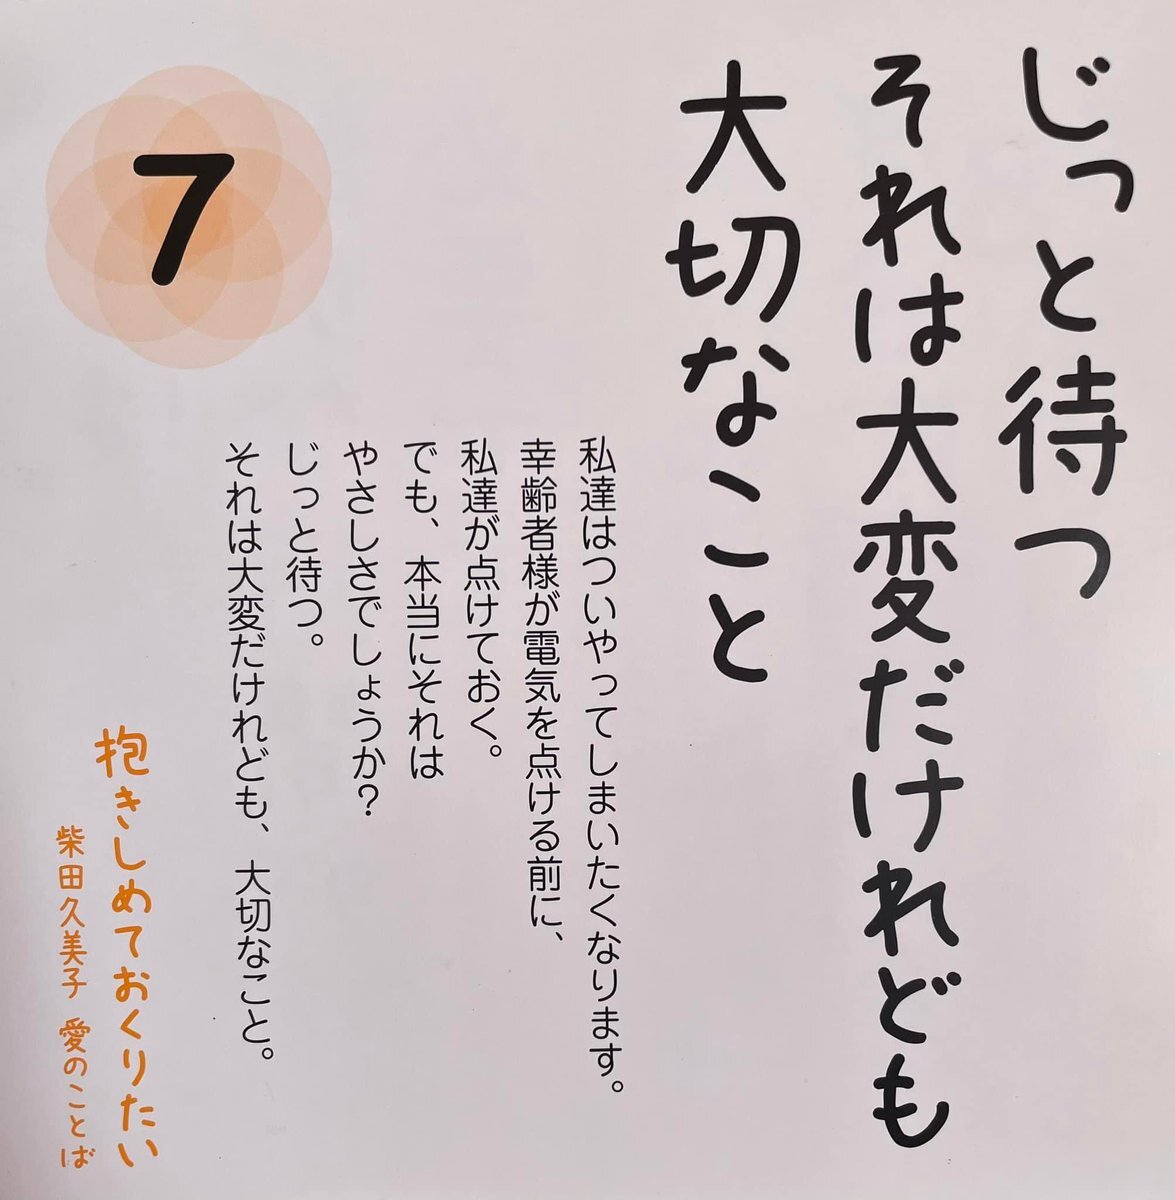 じっと待つ
それは大変だけれども
大切なこと
私達はついやってしまいたくなります。
幸齢者様が電気を点ける前に、
私達が点けておく。
でも、本当にそれは
やさしさでしょうか?
じっと待つ。
それは大変だけれども、大切なこと。
7
抱きしめておくりたい
柴田久美子 愛のことば